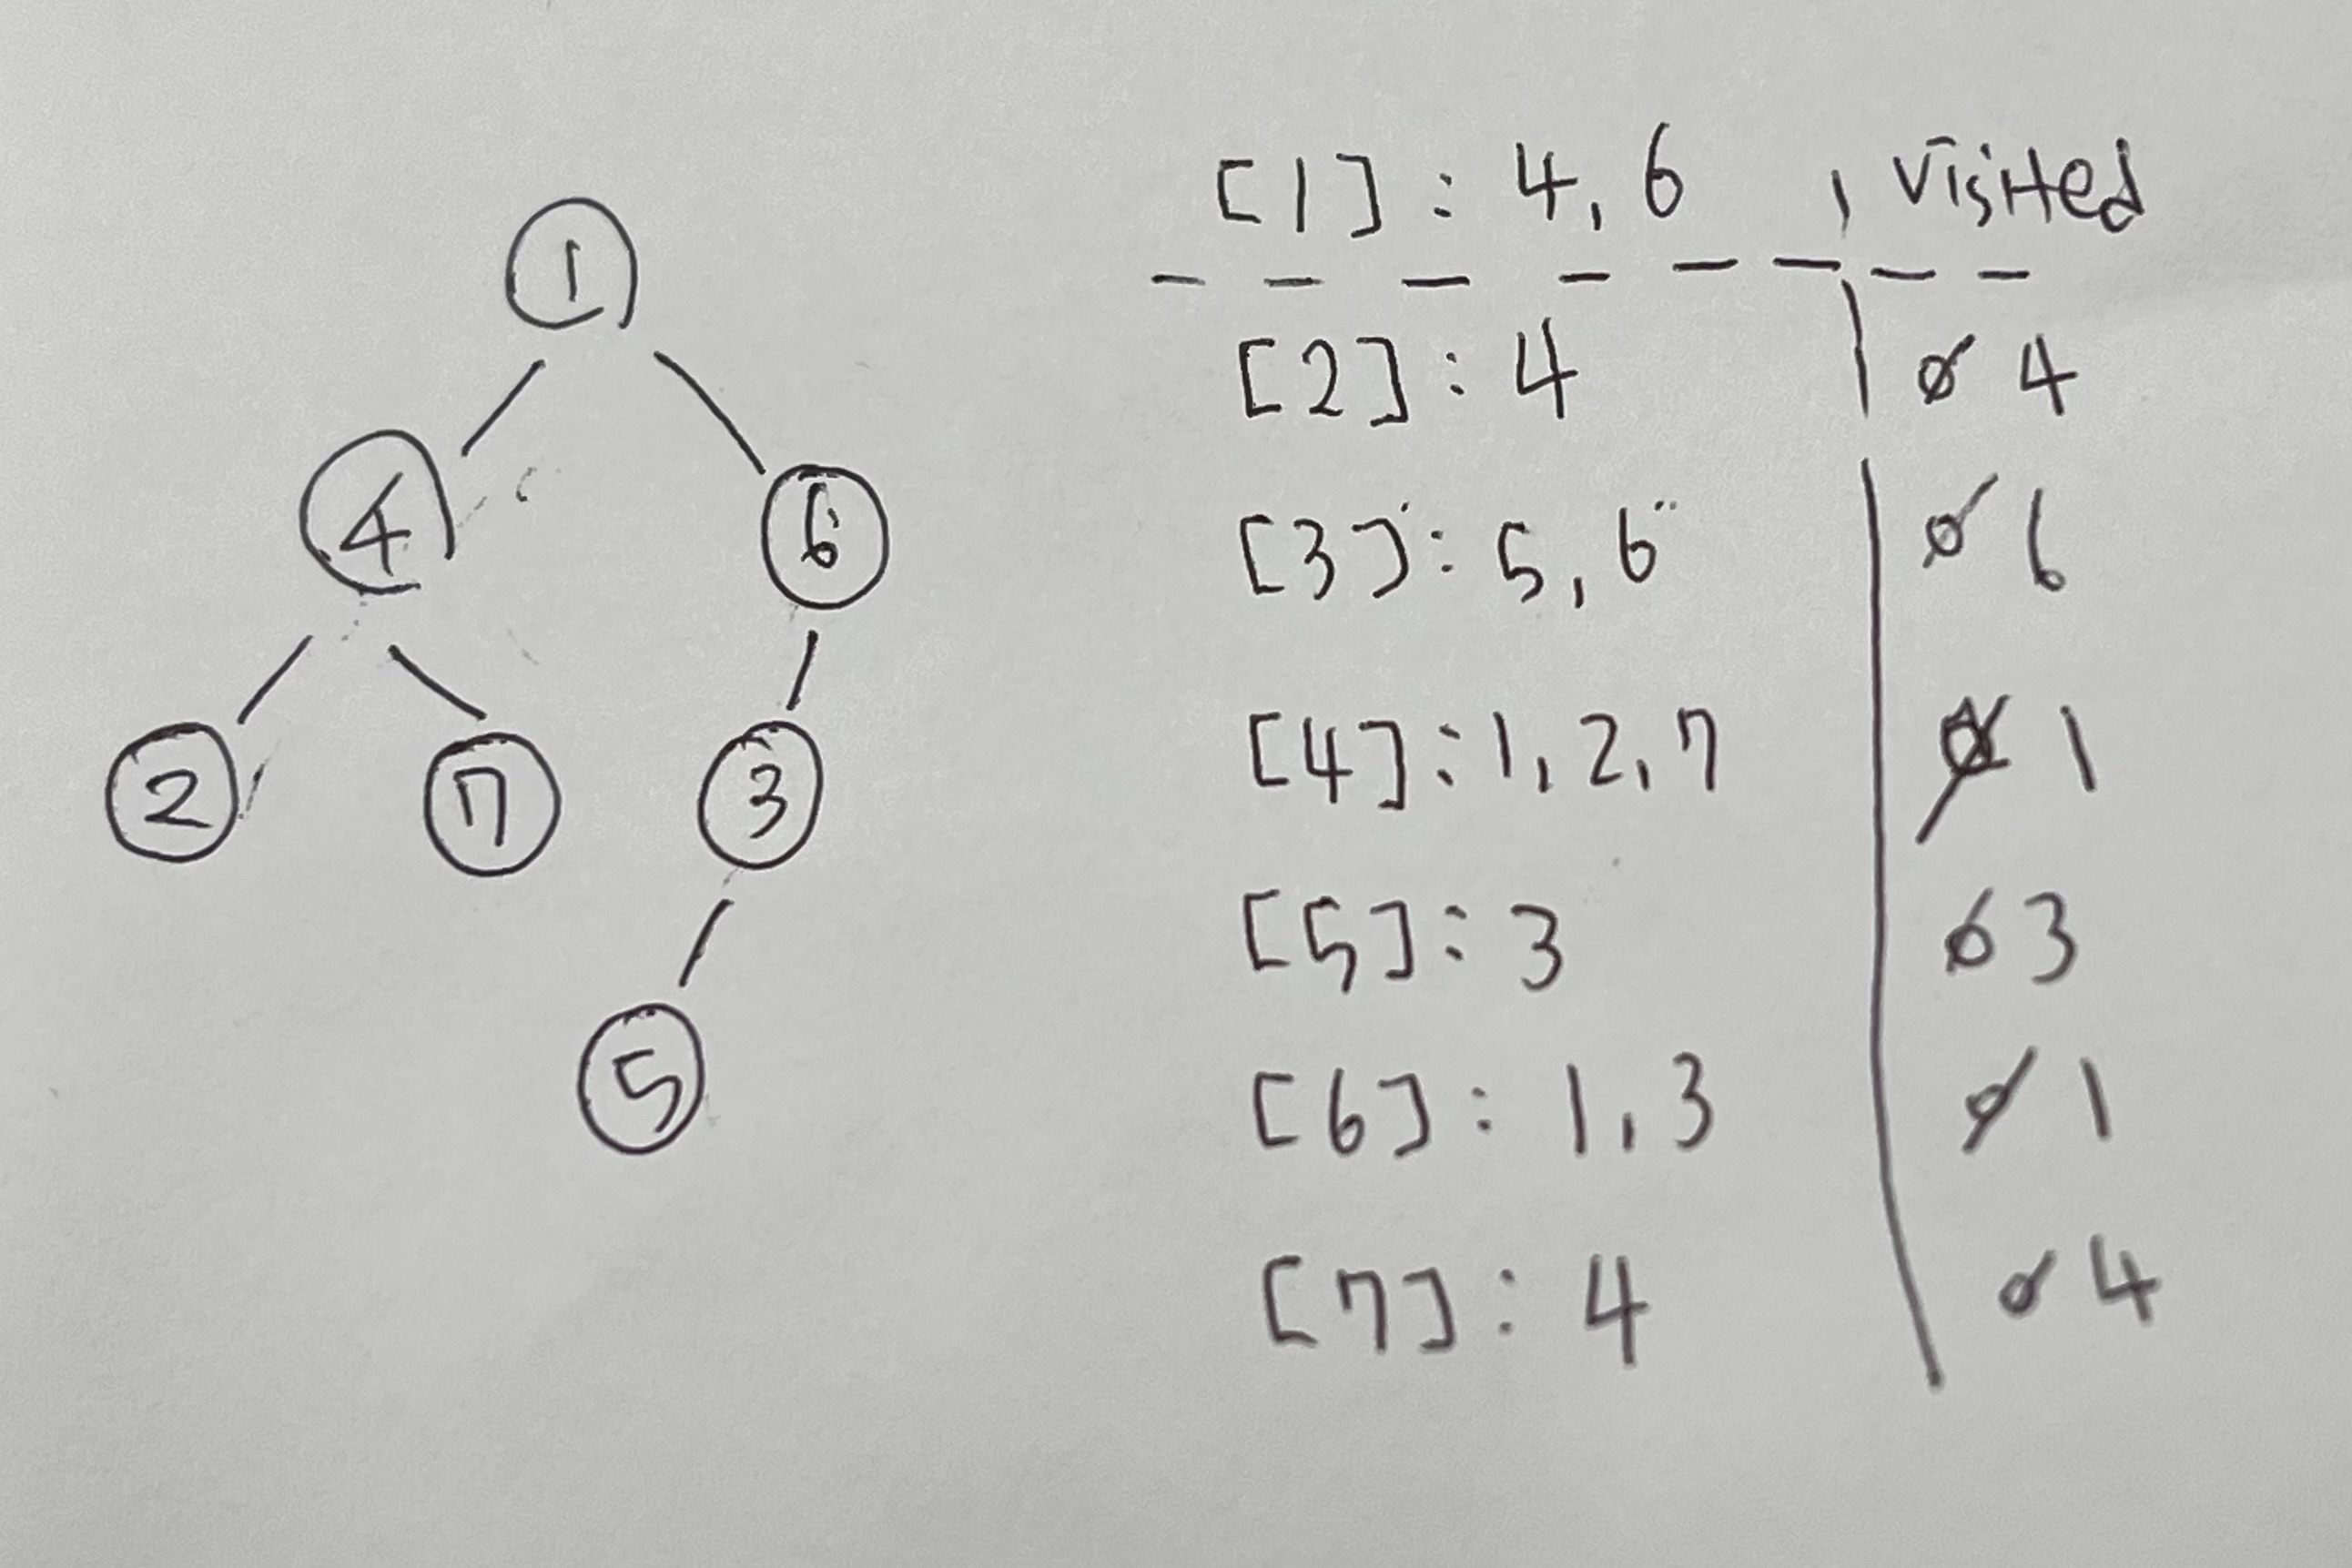 1
4 6
2 7 3
5
[1] : 4, 6 , visited
[2] : 4 0 4
[3] : 5, 6 0 6
[4] : 1, 2, 7 1
[5] : 3 0 3
[6] : 1, 3 0 1
[7] : 4 0 4